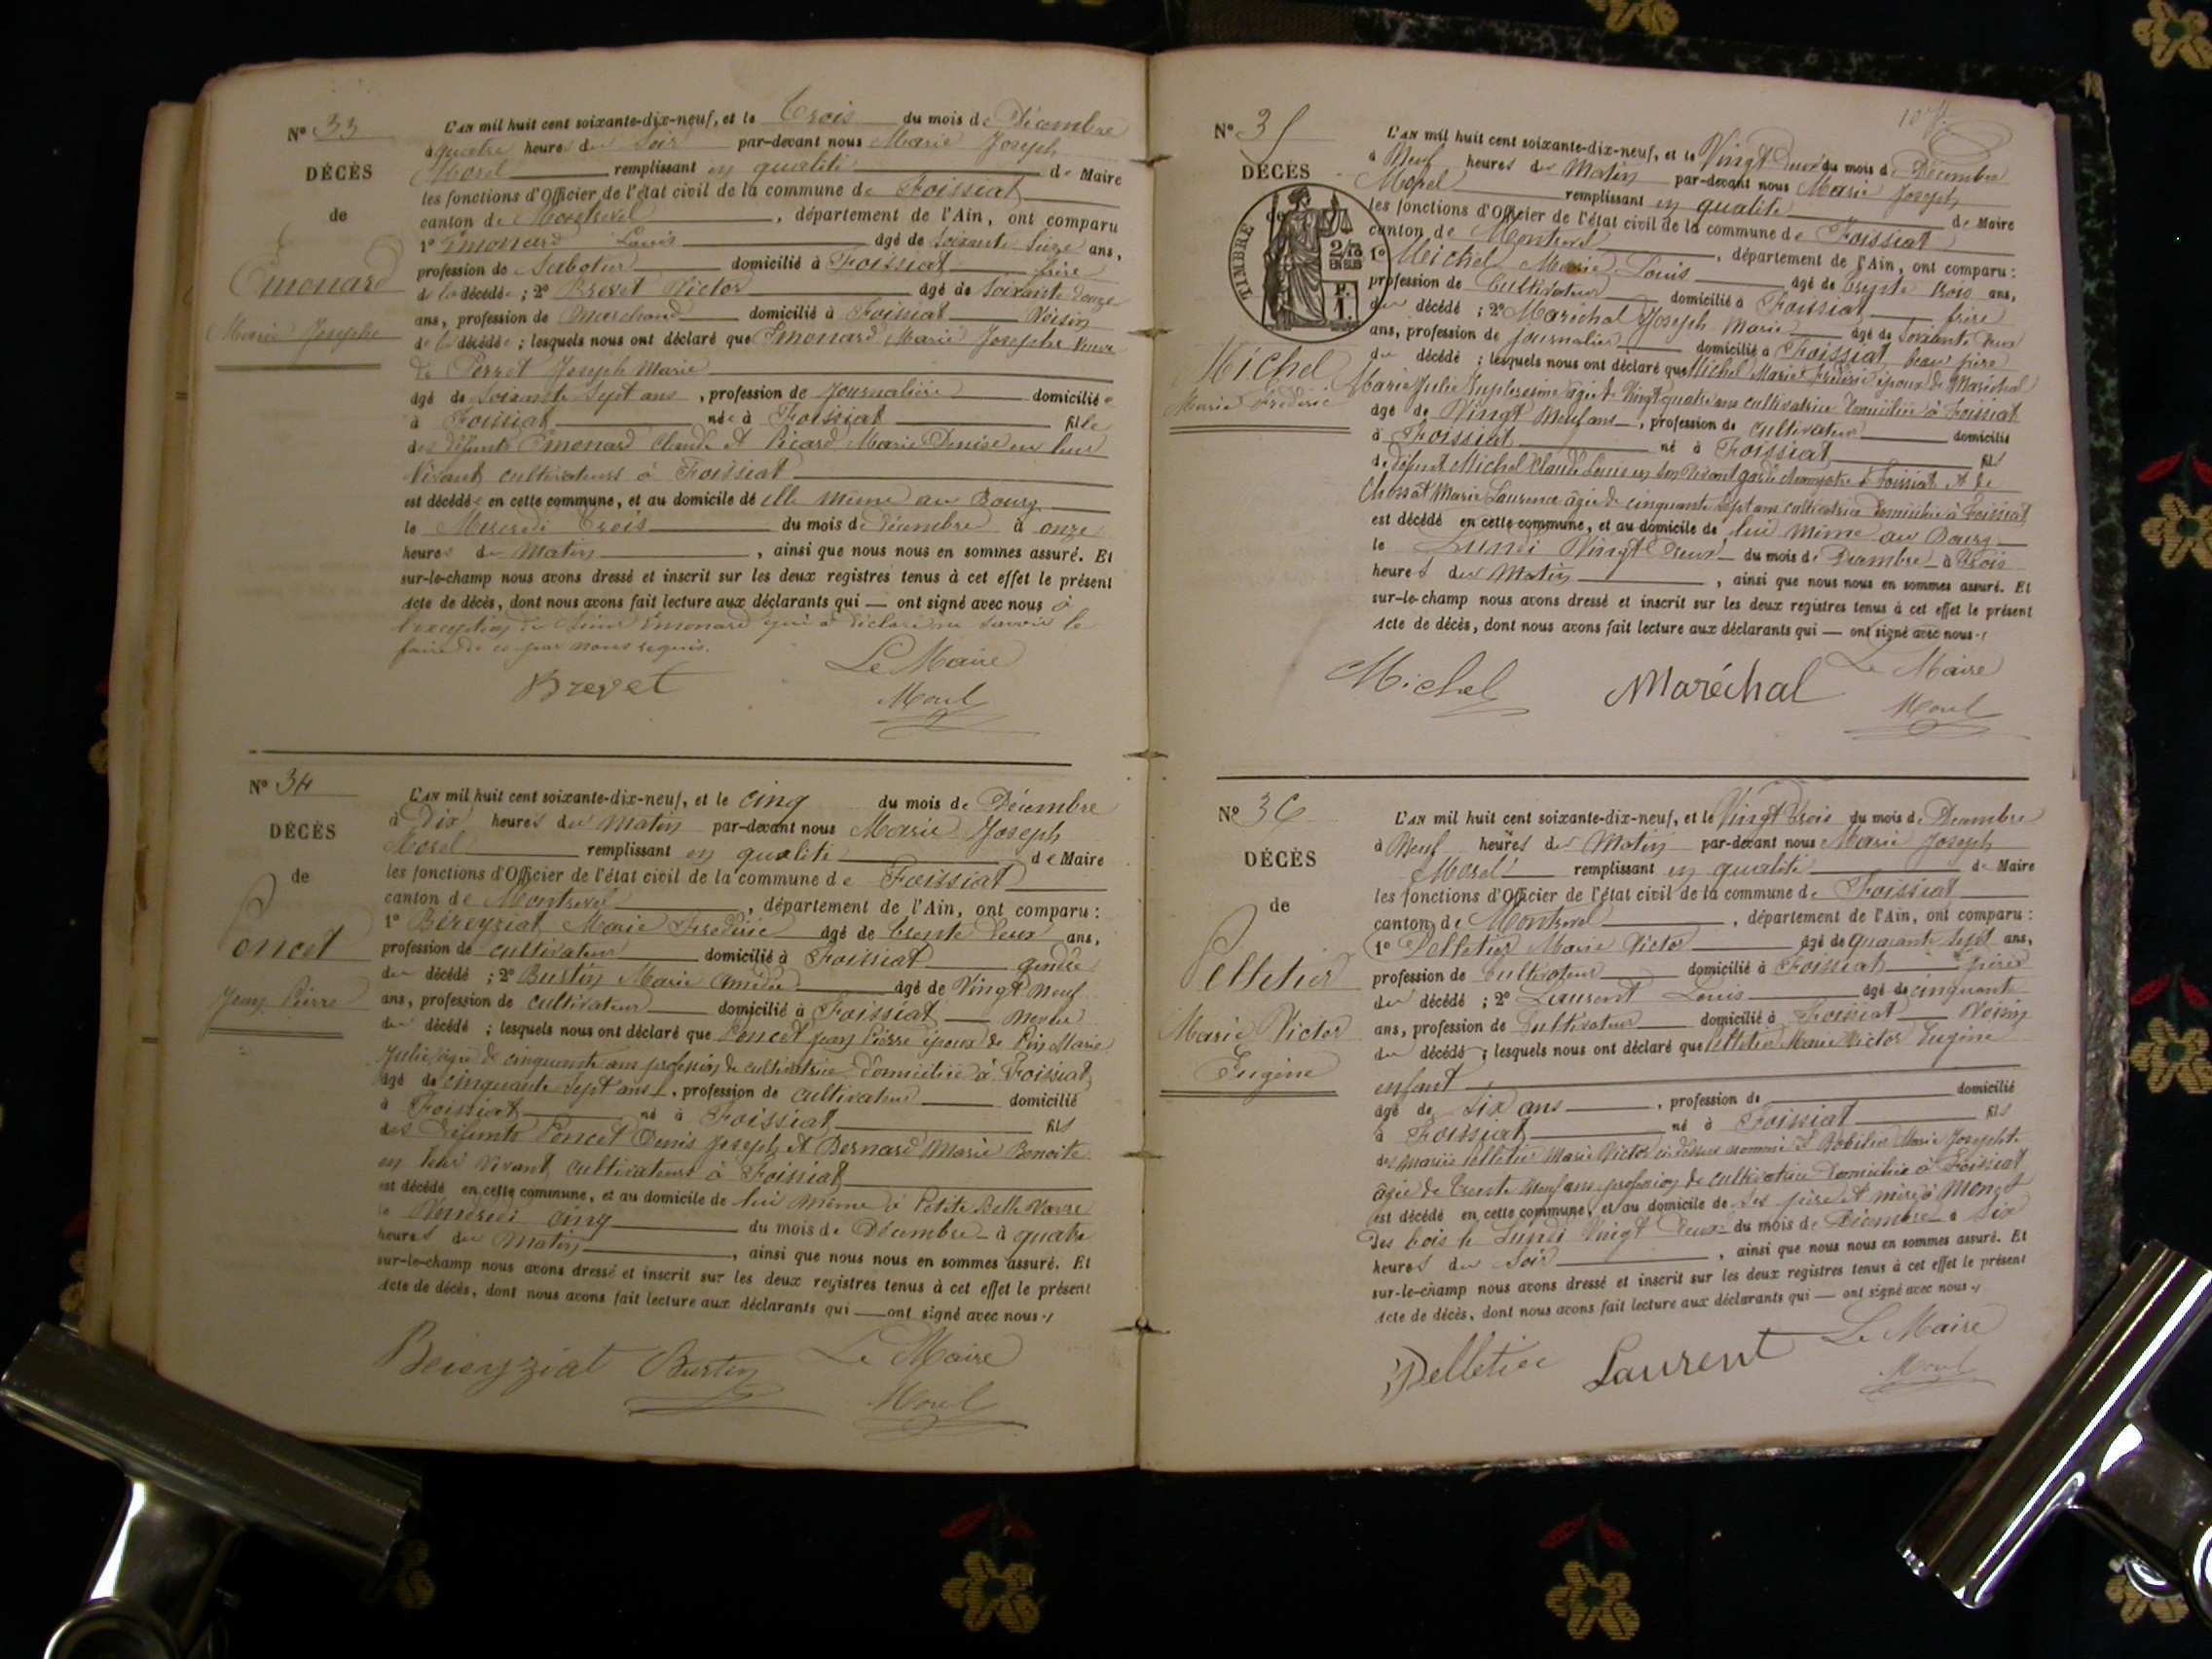 N° 33
DÉCÈS
de
Émonard
Marie Josephe
L'AN mil huit cent soixante-dix-neuf, et le Trois du mois de Décembre
à quatre heures du Soir par-devant nous Marie Joseph
Morel remplissant en qualité de Maire
les fonctions d'Officier de l'état civil de la commune de Foissiat
canton de Montrevel, département de l'Ain, ont comparu
1° Émonard Louis âgé de soixante Seize ans,
profession de Sabotier domicilié à Foissiat frère
de la décédée ; 2° Brevet Victor âgé de Soixante douze
ans, profession de Marchand domicilié à Foissiat Voisin
de la décédée ; lesquels nous ont déclaré que Émonard Marie Josephe Veuve
de Perret Joseph Marie
âgé de Soixante Sept ans, profession de Journalière domiciliée
à Foissiat née à Foissiat fille
des défunts Émonard Claude et Picard Marie Denise en leur
Vivant cultivateurs à Foissiat
est décédée en cette commune, et au domicile de elle même au Bourg
le Mercredi Trois du mois de Décembre à onze
heures du Matin, ainsi que nous nous en sommes assuré. Et
sur-le-champ nous avons dressé et inscrit sur les deux registres tenus à cet effet le présent
Acte de décès, dont nous avons fait lecture aux déclarants qui — ont signé avec nous à
l'exception de Émonard qui a déclaré ne savoir le
faire de ce par nous requis.
Brevet
Le Maire
Morel
N° 34
DÉCÈS
de
Poncet
Jean Pierre
L'AN mil huit cent soixante-dix-neuf, et le cinq du mois de Décembre
à Dix heures du Matin par-devant nous Marie Joseph
Morel remplissant en qualité de Maire
les fonctions d'Officier de l'état civil de la commune de Foissiat
canton de Montrevel, département de l'Ain, ont comparu :
1° Béreyziat Marie Frédéric âgé de Trente deux ans,
profession de cultivateur domicilié à Foissiat gendre
du décédé ; 2° Burtin Marie Amédée âgé de Vingt Neuf
ans, profession de cultivateur domicilié à Foissiat neveu
du décédé ; lesquels nous ont déclaré que Poncet Jean Pierre époux de Pin Marie
Julie, âgée de cinquante ans profession de cultivatrice domiciliée à Foissiat
âgé de cinquante Sept ans, profession de cultivateur domicilié
à Foissiat né à Foissiat fils
des défunts Poncet Denis Joseph et Bernard Marie Benoite
en leur Vivant cultivateurs à Foissiat
est décédé en cette commune, et au domicile de lui même à Petite Belle Vavre
le Vendredi cinq du mois de Décembre à quatre
heures du Matin, ainsi que nous nous en sommes assuré. Et
sur-le-champ nous avons dressé et inscrit sur les deux registres tenus à cet effet le présent
Acte de décès, dont nous avons fait lecture aux déclarants qui — ont signé avec nous
Béreyziat Burtin Le Maire
Morel
N° 35
DÉCÈS
de
TIMBRE
2/10
EN SUS
P.
1.
Michel
Marie Frédéric
L'AN mil huit cent soixante-dix-neuf, et le Vingt deux du mois de Décembre
à Neuf heures du Matin par-devant nous Marie Joseph
Morel remplissant en qualité de Maire
les fonctions d'Officier de l'état civil de la commune de Foissiat
canton de Montrevel, département de l'Ain, ont comparu :
1° Michel Marie Louis âgé de Trente Trois ans,
profession de Cultivateur domicilié à Foissiat frère
du décédé ; 2° Maréchal Joseph Marie âgé de Soixante deux
ans, profession de Journalier domicilié à Foissiat beau frère
du décédé ; lesquels nous ont déclaré que Michel Marie Frédéric époux de Maréchal
Marie Julie âgée de Vingt quatre ans cultivatrice domiciliée à Foissiat
âgé de Vingt Neuf ans, profession de Cultivateur domicilié
à Foissiat né à Foissiat fils
de défunt Michel Claude Louis en son Vivant garde champêtre à Foissiat et de
Chossat Marie Laurence âgée de cinquante Sept ans cultivatrice domiciliée à Foissiat
est décédé en cette commune, et au domicile de lui même au Bourg
le Lundi Vingt Deux du mois de Décembre à Trois
heures du Matin, ainsi que nous nous en sommes assuré. Et
sur-le-champ nous avons dressé et inscrit sur les deux registres tenus à cet effet le présent
Acte de décès, dont nous avons fait lecture aux déclarants qui — ont signé avec nous
Michel Maréchal Le Maire
Morel
N° 36
DÉCÈS
de
Pelletier
Marie Victor
Eugène
L'AN mil huit cent soixante-dix-neuf, et le Vingt Trois du mois de Décembre
à Neuf heures du Matin par-devant nous Marie Joseph
Morel remplissant en qualité de Maire
les fonctions d'Officier de l'état civil de la commune de Foissiat
canton de Montrevel, département de l'Ain, ont comparu :
1° Pelletier Marie Victor âgé de quarante Sept ans,
profession de Cultivateur domicilié à Foissiat père
du décédé ; 2° Laurent Louis âgé de cinquante
ans, profession de Cultivateur domicilié à Foissiat Voisin
du décédé ; lesquels nous ont déclaré que Pelletier Marie Victor Eugène
enfant
âgé de Six ans, profession de domicilié
à Foissiat né à Foissiat fils
des mariés Pelletier Marie Victor ci dessus nommé et Marie Josephte
âgée de Trente Neuf ans profession de cultivatrice domiciliée à Foissiat
est décédé en cette commune, et au domicile de Ses père et mère à Mont
des bois le Lundi Vingt Deux du mois de Décembre à Six
heures du Soir, ainsi que nous nous en sommes assuré. Et
sur-le-champ nous avons dressé et inscrit sur les deux registres tenus à cet effet le présent
Acte de décès, dont nous avons fait lecture aux déclarants qui — ont signé avec nous
Pelletier Laurent Le Maire
Morel